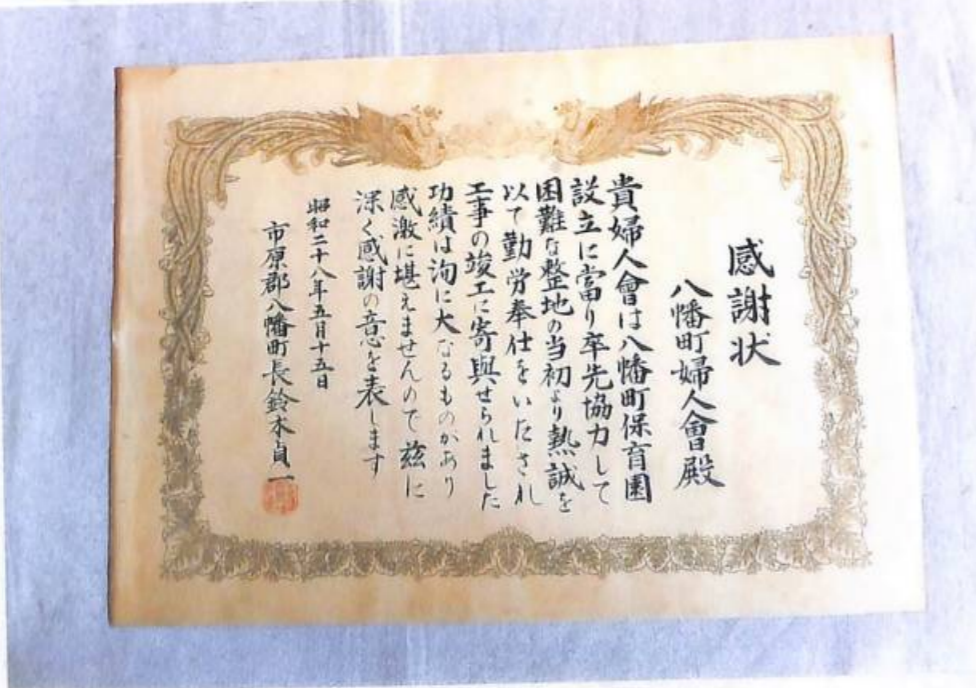 感謝状
八幡町婦人會殿
貴婦人會は八幡町保育園
設立に當り卒先協力して
困難な整地の当初より熱誠を
以て勤労奉仕をいたされ
工事の竣工に寄與せられました
功績は洵に大なるものがあり
感激に堪えませんので茲に
深く感謝の意を表します
昭和二十八年五月十五日
市原郡八幡町長鈴木貞一